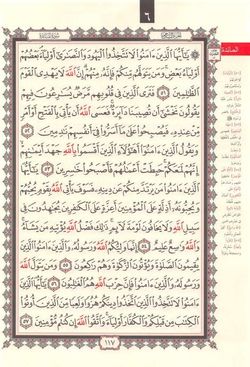 ٦
المائدة
يَٰٓأَيُّهَا ٱلَّذِينَ ءَامَنُوا۟ لَا تَتَّخِذُوا۟ ٱلْيَهُودَ وَٱلنَّصَٰرَىٰٓ أَوْلِيَآءَ بَعْضُهُمْ
أَوْلِيَآءُ بَعْضٍ وَمَن يَتَوَلَّهُم مِّنكُمْ فَإِنَّهُۥ مِنْهُمْ إِنَّ ٱللَّهَ لَا يَهْدِى ٱلْقَوْمَ
ٱلظَّٰلِمِينَ ٥١ فَتَرَى ٱلَّذِينَ فِى قُلُوبِهِم مَّرَضٌ يُسَٰرِعُونَ فِيهِمْ
يَقُولُونَ نَخْشَىٰٓ أَن تُصِيبَنَا دَآئِرَةٌ فَعَسَى ٱللَّهُ أَن يَأْتِىَ بِٱلْفَتْحِ أَوْ أَمْرٍ
مِّنْ عِندِهِۦ فَيُصْبِحُوا۟ عَلَىٰ مَآ أَسَرُّوا۟ فِىٓ أَنفُسِهِمْ نَٰدِمِينَ ٥٢
وَيَقُولُ ٱلَّذِينَ ءَامَنُوٓا۟ أَهَٰٓؤُلَآءِ ٱلَّذِينَ أَقْسَمُوا۟ بِٱللَّهِ جَهْدَ أَيْمَٰنِهِمْ
إِنَّهُمْ لَمَعَكُمْ حَبِطَتْ أَعْمَٰلُهُمْ فَأَصْبَحُوا۟ خَٰسِرِينَ ٥٣ يَٰٓأَيُّهَا
ٱلَّذِينَ ءَامَنُوا۟ مَن يَرْتَدَّ مِنكُمْ عَن دِينِهِۦ فَسَوْفَ يَأْتِى ٱللَّهُ بِقَوْمٍ يُحِبُّهُمْ
وَيُحِبُّونَهُۥٓ أَذِلَّةٍ عَلَى ٱلْمُؤْمِنِينَ أَعِزَّةٍ عَلَى ٱلْكَٰفِرِينَ يُجَٰهِدُونَ فِى
سَبِيلِ ٱللَّهِ وَلَا يَخَافُونَ لَوْمَةَ لَآئِمٍ ذَٰلِكَ فَضْلُ ٱللَّهِ يُؤْتِيهِ مَن يَشَآءُ
وَٱللَّهُ وَٰسِعٌ عَلِيمٌ ٥٤ إِنَّمَا وَلِيُّكُمُ ٱللَّهُ وَرَسُولُهُۥ وَٱلَّذِينَ ءَامَنُوا۟ ٱلَّذِينَ
يُقِيمُونَ ٱلصَّلَوٰةَ وَيُؤْتُونَ ٱلزَّكَوٰةَ وَهُمْ رَٰكِعُونَ ٥٥ وَمَن يَتَوَلَّ ٱللَّهَ
وَرَسُولَهُۥ وَٱلَّذِينَ ءَامَنُوا۟ فَإِنَّ حِزْبَ ٱللَّهِ هُمُ ٱلْغَٰلِبُونَ ٥٦ يَٰٓأَيُّهَا ٱلَّذِينَ
ءَامَنُوا۟ لَا تَتَّخِذُوا۟ ٱلَّذِينَ ٱتَّخَذُوا۟ دِينَكُمْ هُزُوًا وَلَعِبًا مِّنَ ٱلَّذِينَ أُوتُوا۟
ٱلْكِتَٰبَ مِن قَبْلِكُمْ وَٱلْكُفَّارَ أَوْلِيَآءَ وَٱتَّقُوا۟ ٱللَّهَ إِن كُنتُم مُّؤْمِنِينَ ٥٧
١١٧